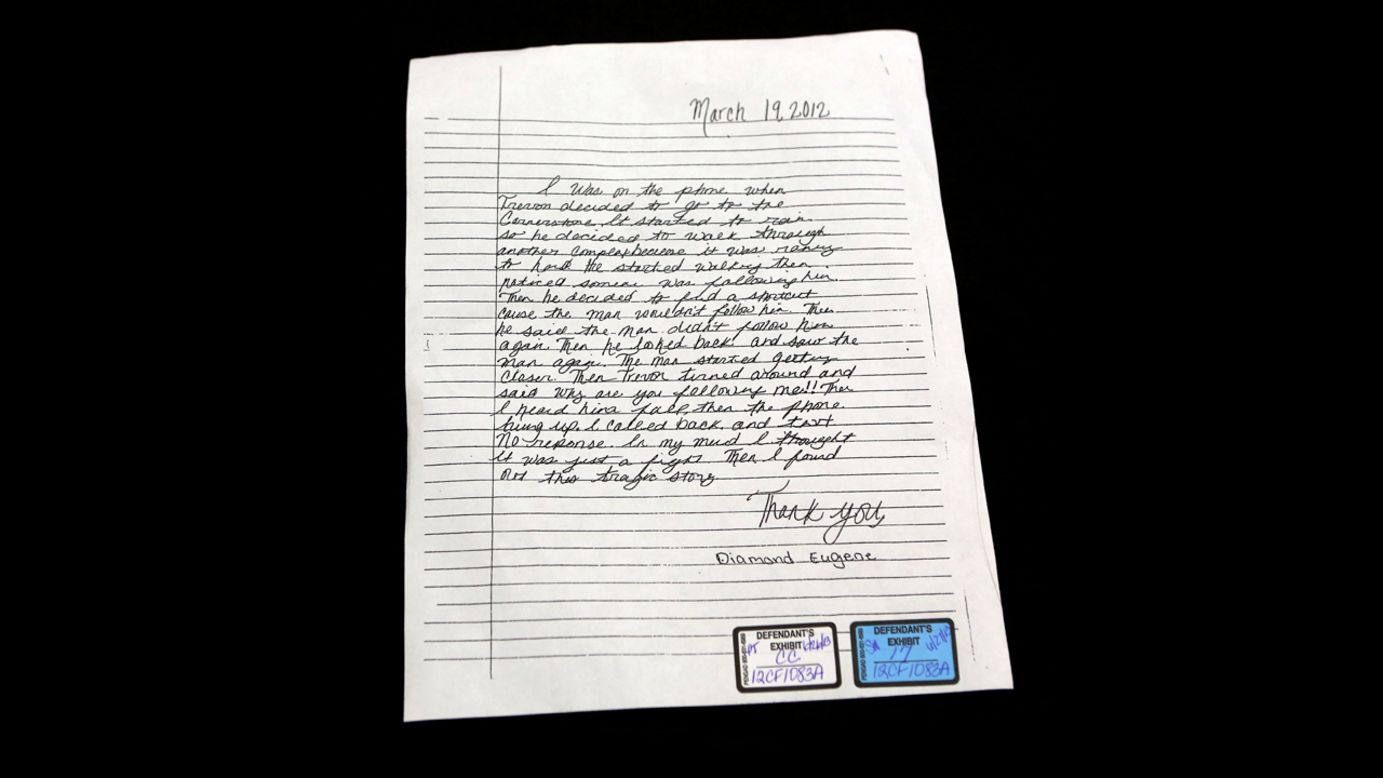 March 19, 2012
I was on the phone when
Trevon decided to go to the
Cornerstore. It started to rain
so he decided to walk through
another complex because it was raining
to hard. He started walking then
noticed someone was following him.
Then he decided to find a shortcut
cause the man wouldn't follow him. Then
he said the man didn't follow him
again. Then he looked back and saw the
man again. The man started getting
closer. Then Trevon turned around and
said why are you following me!! Then
I heard him fall, then the phone
hung up. I called back and text
No reponse. In my mind I thought
it was just a fight. Then I found
out this tragic story.
Thank you,
Diamond Eugene
DEFENDANT'S
EXHIBIT
CC
12CF1083A
DEFENDANT'S
EXHIBIT
17
12CF1083A